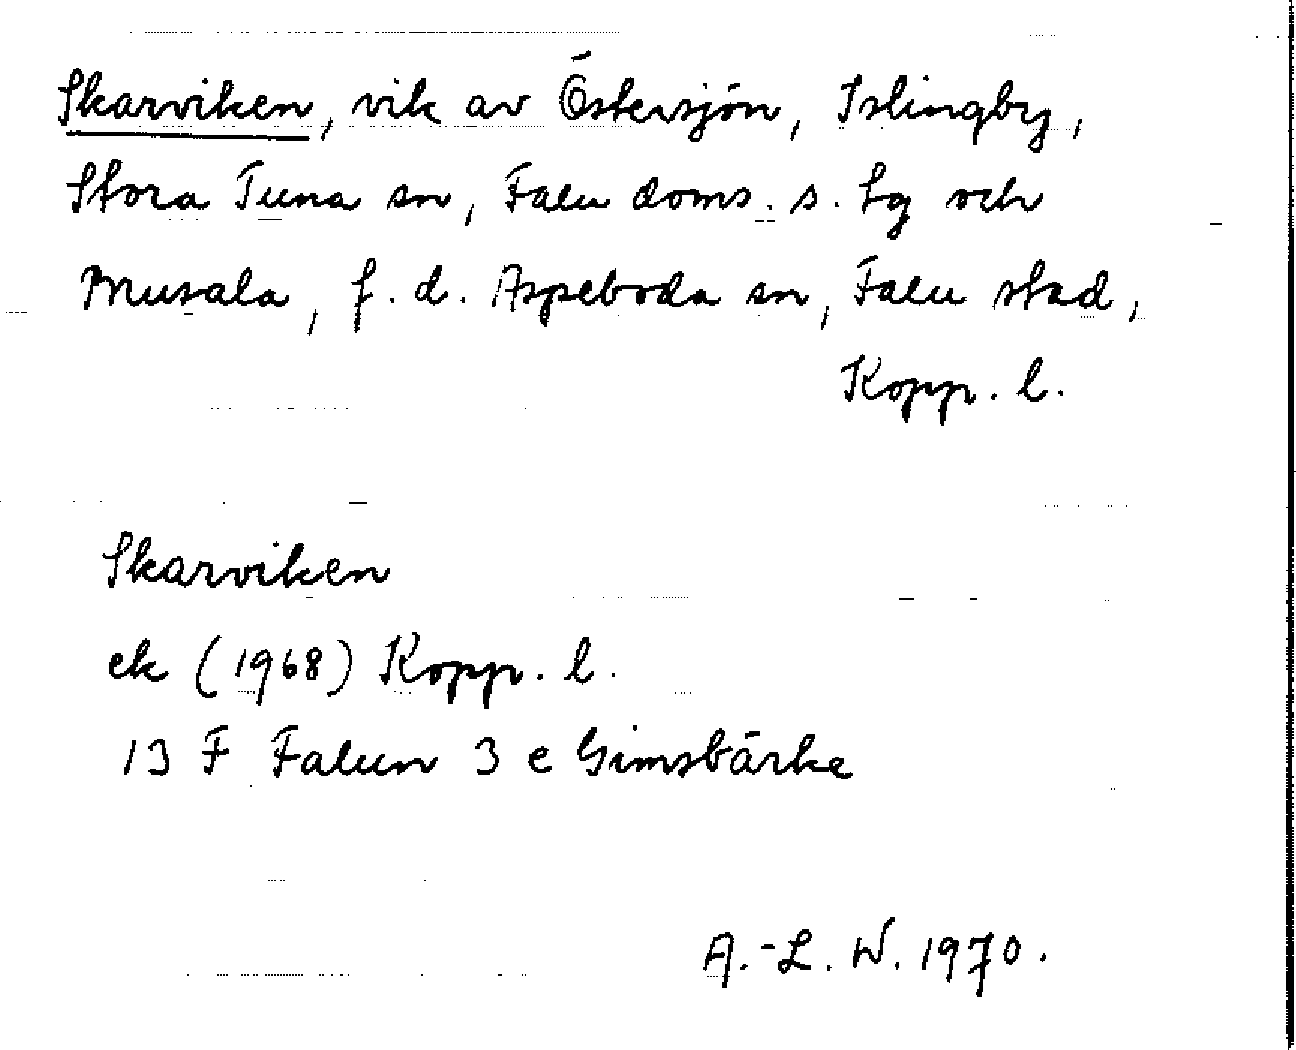 Skarviken, vik av Östersjön, Islingby,
Stora Tuna sn, Falu doms. s. tg och
Musala, f. d. Aspeboda sn, Falu stad,
Kopp. l.
Skarviken
ek (1968) Kopp. l.
13 F Falun 3 e Gimsbärke
A.-L. W. 1970.